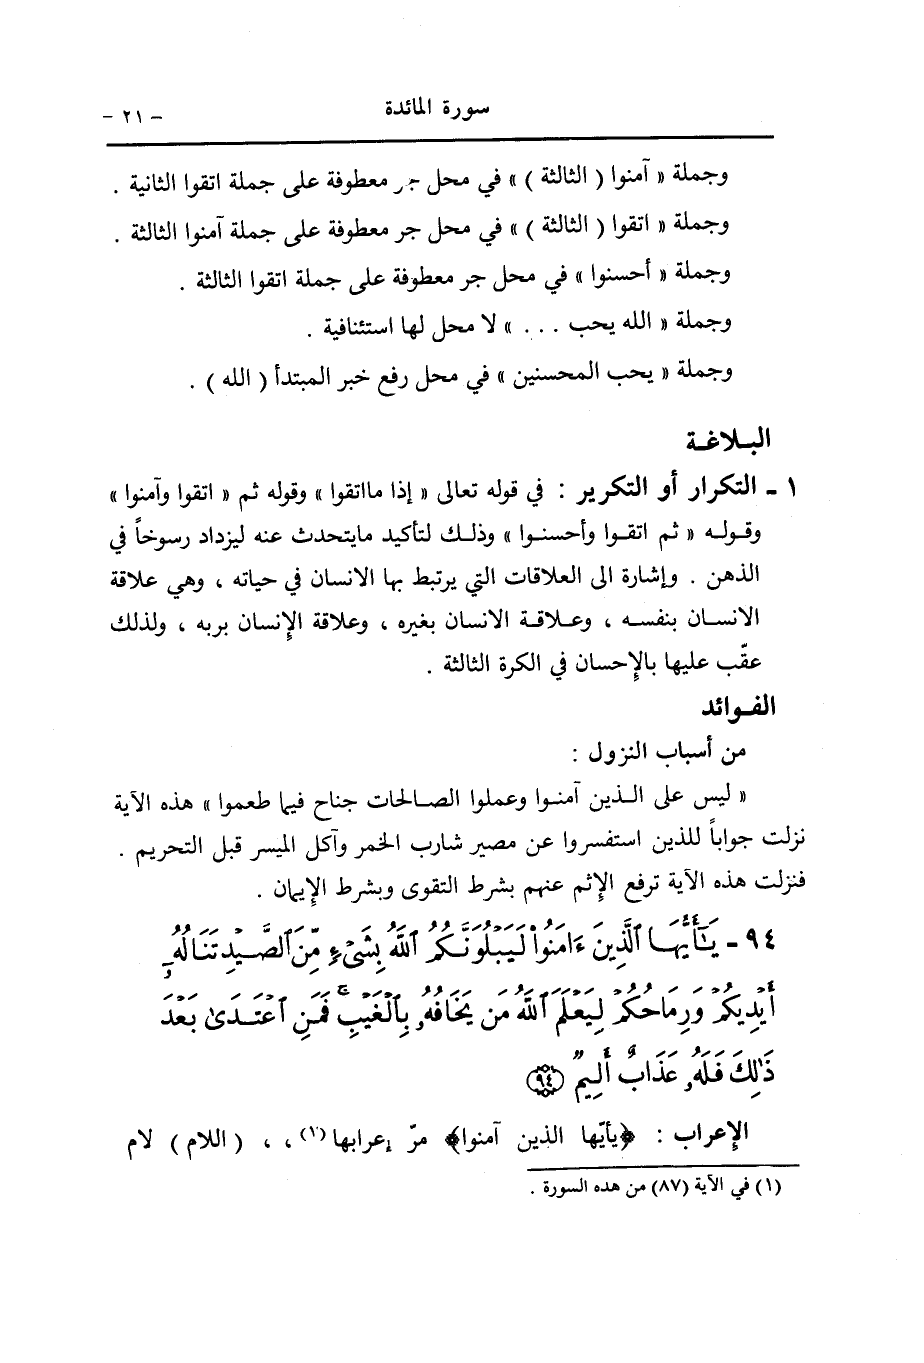 سورة المائدة
- ٢١ -
وجملة « آمنوا ( الثالثة ) » في محل جر معطوفة على جملة اتقوا الثانية .
وجملة « اتقوا ( الثالثة ) » في محل جر معطوفة على جملة آمنوا الثالثة .
وجملة « أحسنوا » في محل جر معطوفة على جملة اتقوا الثالثة .
وجملة « الله يحب . . . » لا محل لها استئنافية .
وجملة « يحب المحسنين » في محل رفع خبر المبتدأ ( الله ) .
البلاغة
١ - التكرار أو التكرير : في قوله تعالى « إذا مااتقوا » وقوله ثم « اتقوا وآمنوا »
وقوله « ثم اتقوا وأحسنوا » وذلك لتأكيد مايتحدث عنه ليزداد رسوخاً في
الذهن . وإشارة الى العلاقات التي يرتبط بها الانسان في حياته ، وهي علاقة
الانسان بنفسه ، وعلاقة الانسان بغيره ، وعلاقة الإنسان بربه ، ولذلك
عقّب عليها بالإحسان في الكرة الثالثة .
الفوائد
من أسباب النزول :
« ليس على الذين آمنوا وعملوا الصالحات جناح فيما طعموا » هذه الآية
نزلت جواباً للذين استفسروا عن مصير شارب الخمر وآكل الميسر قبل التحريم .
فنزلت هذه الآية ترفع الإثم عنهم بشرط التقوى وبشرط الإيمان .
٩٤ - يَـٰٓأَيُّهَا ٱلَّذِينَ ءَامَنُوا۟ لَيَبْلُوَنَّكُمُ ٱللَّهُ بِشَىْءٍ مِّنَ ٱلصَّيْدِ تَنَالُهُۥٓ
أَيْدِيكُمْ وَرِمَاحُكُمْ لِيَعْلَمَ ٱللَّهُ مَن يَخَافُهُۥ بِٱلْغَيْبِ ۚ فَمَنِ ٱعْتَدَىٰ بَعْدَ
ذَٰلِكَ فَلَهُۥ عَذَابٌ أَلِيمٌ ﴿٩٤﴾
الإعراب : ﴿يأيّها الذين آمنوا﴾ مرّ إعرابها(١) ، ، ( اللام ) لام
(١) في الآية (٨٧) من هذه السورة .